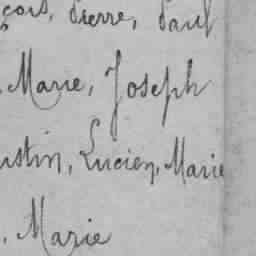 çois, Pierre, Paul
, Marie, Joseph
ustin, Lucien, Marie
, Marie